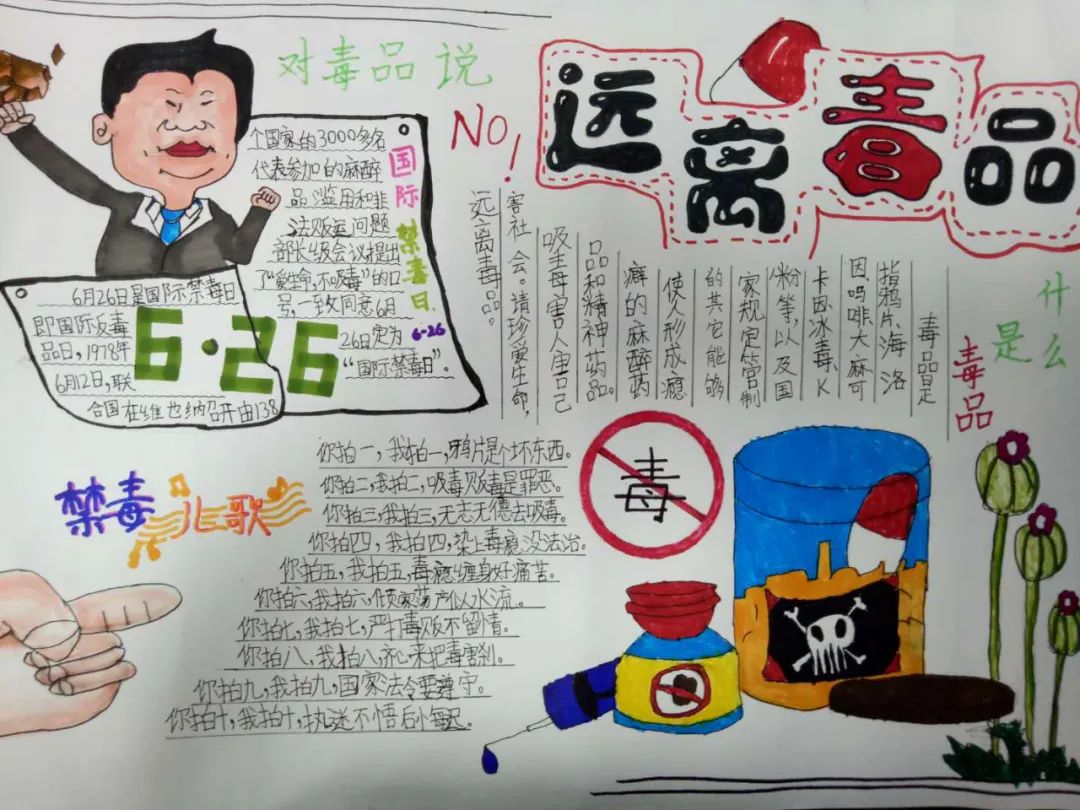 远离毒品
对毒品说
NO!
国际禁毒日.
6-26
6月26日是国际禁毒日
即国际反毒
品日,1978年
6月12日,联
合国在维也纳召开由138
6·26
个国家的3000多名
代表参加的麻醉
品滥用和非
法贩运问题
部长级会议提出
了“爱生命,不吸毒”的口
号,一致同意6月
26日定为
“国际禁毒日”。
什么是毒品
毒品是
指鸦片、海洛
因吗啡大麻可
卡因冰毒、K
粉等,以及国
家规定管制
的其它能够
使人形成瘾
癖的麻醉药
品和精神药品。
吸毒害人害己
害社会。请珍爱生命,
远离毒品。
禁毒儿歌
你拍一,我拍一,鸦片是个坏东西。
你拍二,我拍二,吸毒贩毒是罪恶。
你拍三,我拍三,无志无德去吸毒。
你拍四,我拍四,染上毒瘾没法治。
你拍五,我拍五,毒瘾缠身好痛苦。
你拍六,我拍六,倾家荡产似水流。
你拍七,我拍七,严打毒贩不留情。
你拍八,我拍八,齐心来把毒害刹。
你拍九,我拍九,国家法令要遵守。
你拍十,我拍十,执迷不悟后悔迟。
毒